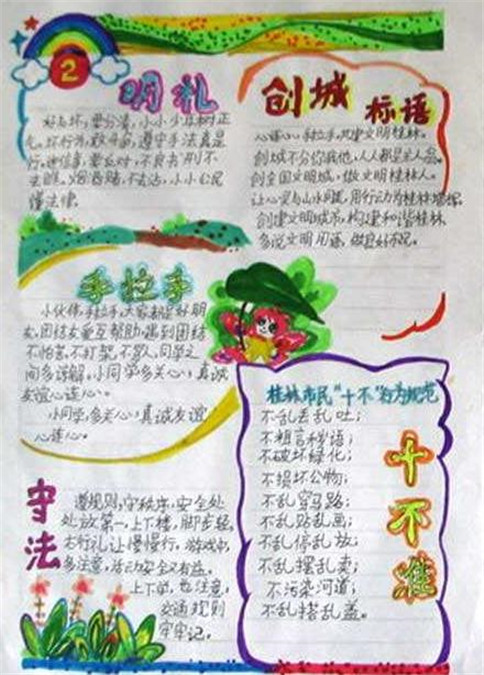 2
明礼
好与坏,要分清,小小少年树正
气。坏行为,敢于面,遵守手法真是
行。迷信事,要反对,不良书刊不
去瞧。烟酒赌,不去沾,小小公民
懂法律。
创城 标语
心连心,手拉手,共建文明桂林。
创城不分你我他,人人都是主人翁。
创全国文明城,做文明桂林人。
让心灵与山水同美,用行动为桂林增辉。
创建文明城市,构建和谐桂林
多说文明用语,做良好市民。
手拉手
小伙伴,手拉手,大家都是好朋
友,团结友爱互帮助,遇到团结
不怕苦,不打架,不骂人,同学之
间多谅解,小同学多关心,真诚
友谊心连心。
小同学,多关心,真诚友谊
心连心。
守法
遵规则,守秩序,安全处
处放第一,上下楼,脚步轻,
右行礼让慢慢行,游戏中,
多注意,活动安全又有益。
上下学,也注意,
交通规则
牢牢记。
桂林市民"十不"行为规范
不乱丢乱吐;
不粗言秽语;
不破坏绿化;
不损坏公物;
不乱穿马路;
不乱贴乱画;
不乱停乱放;
不乱摆乱卖;
不污染河道;
不乱搭乱盖。
十不准